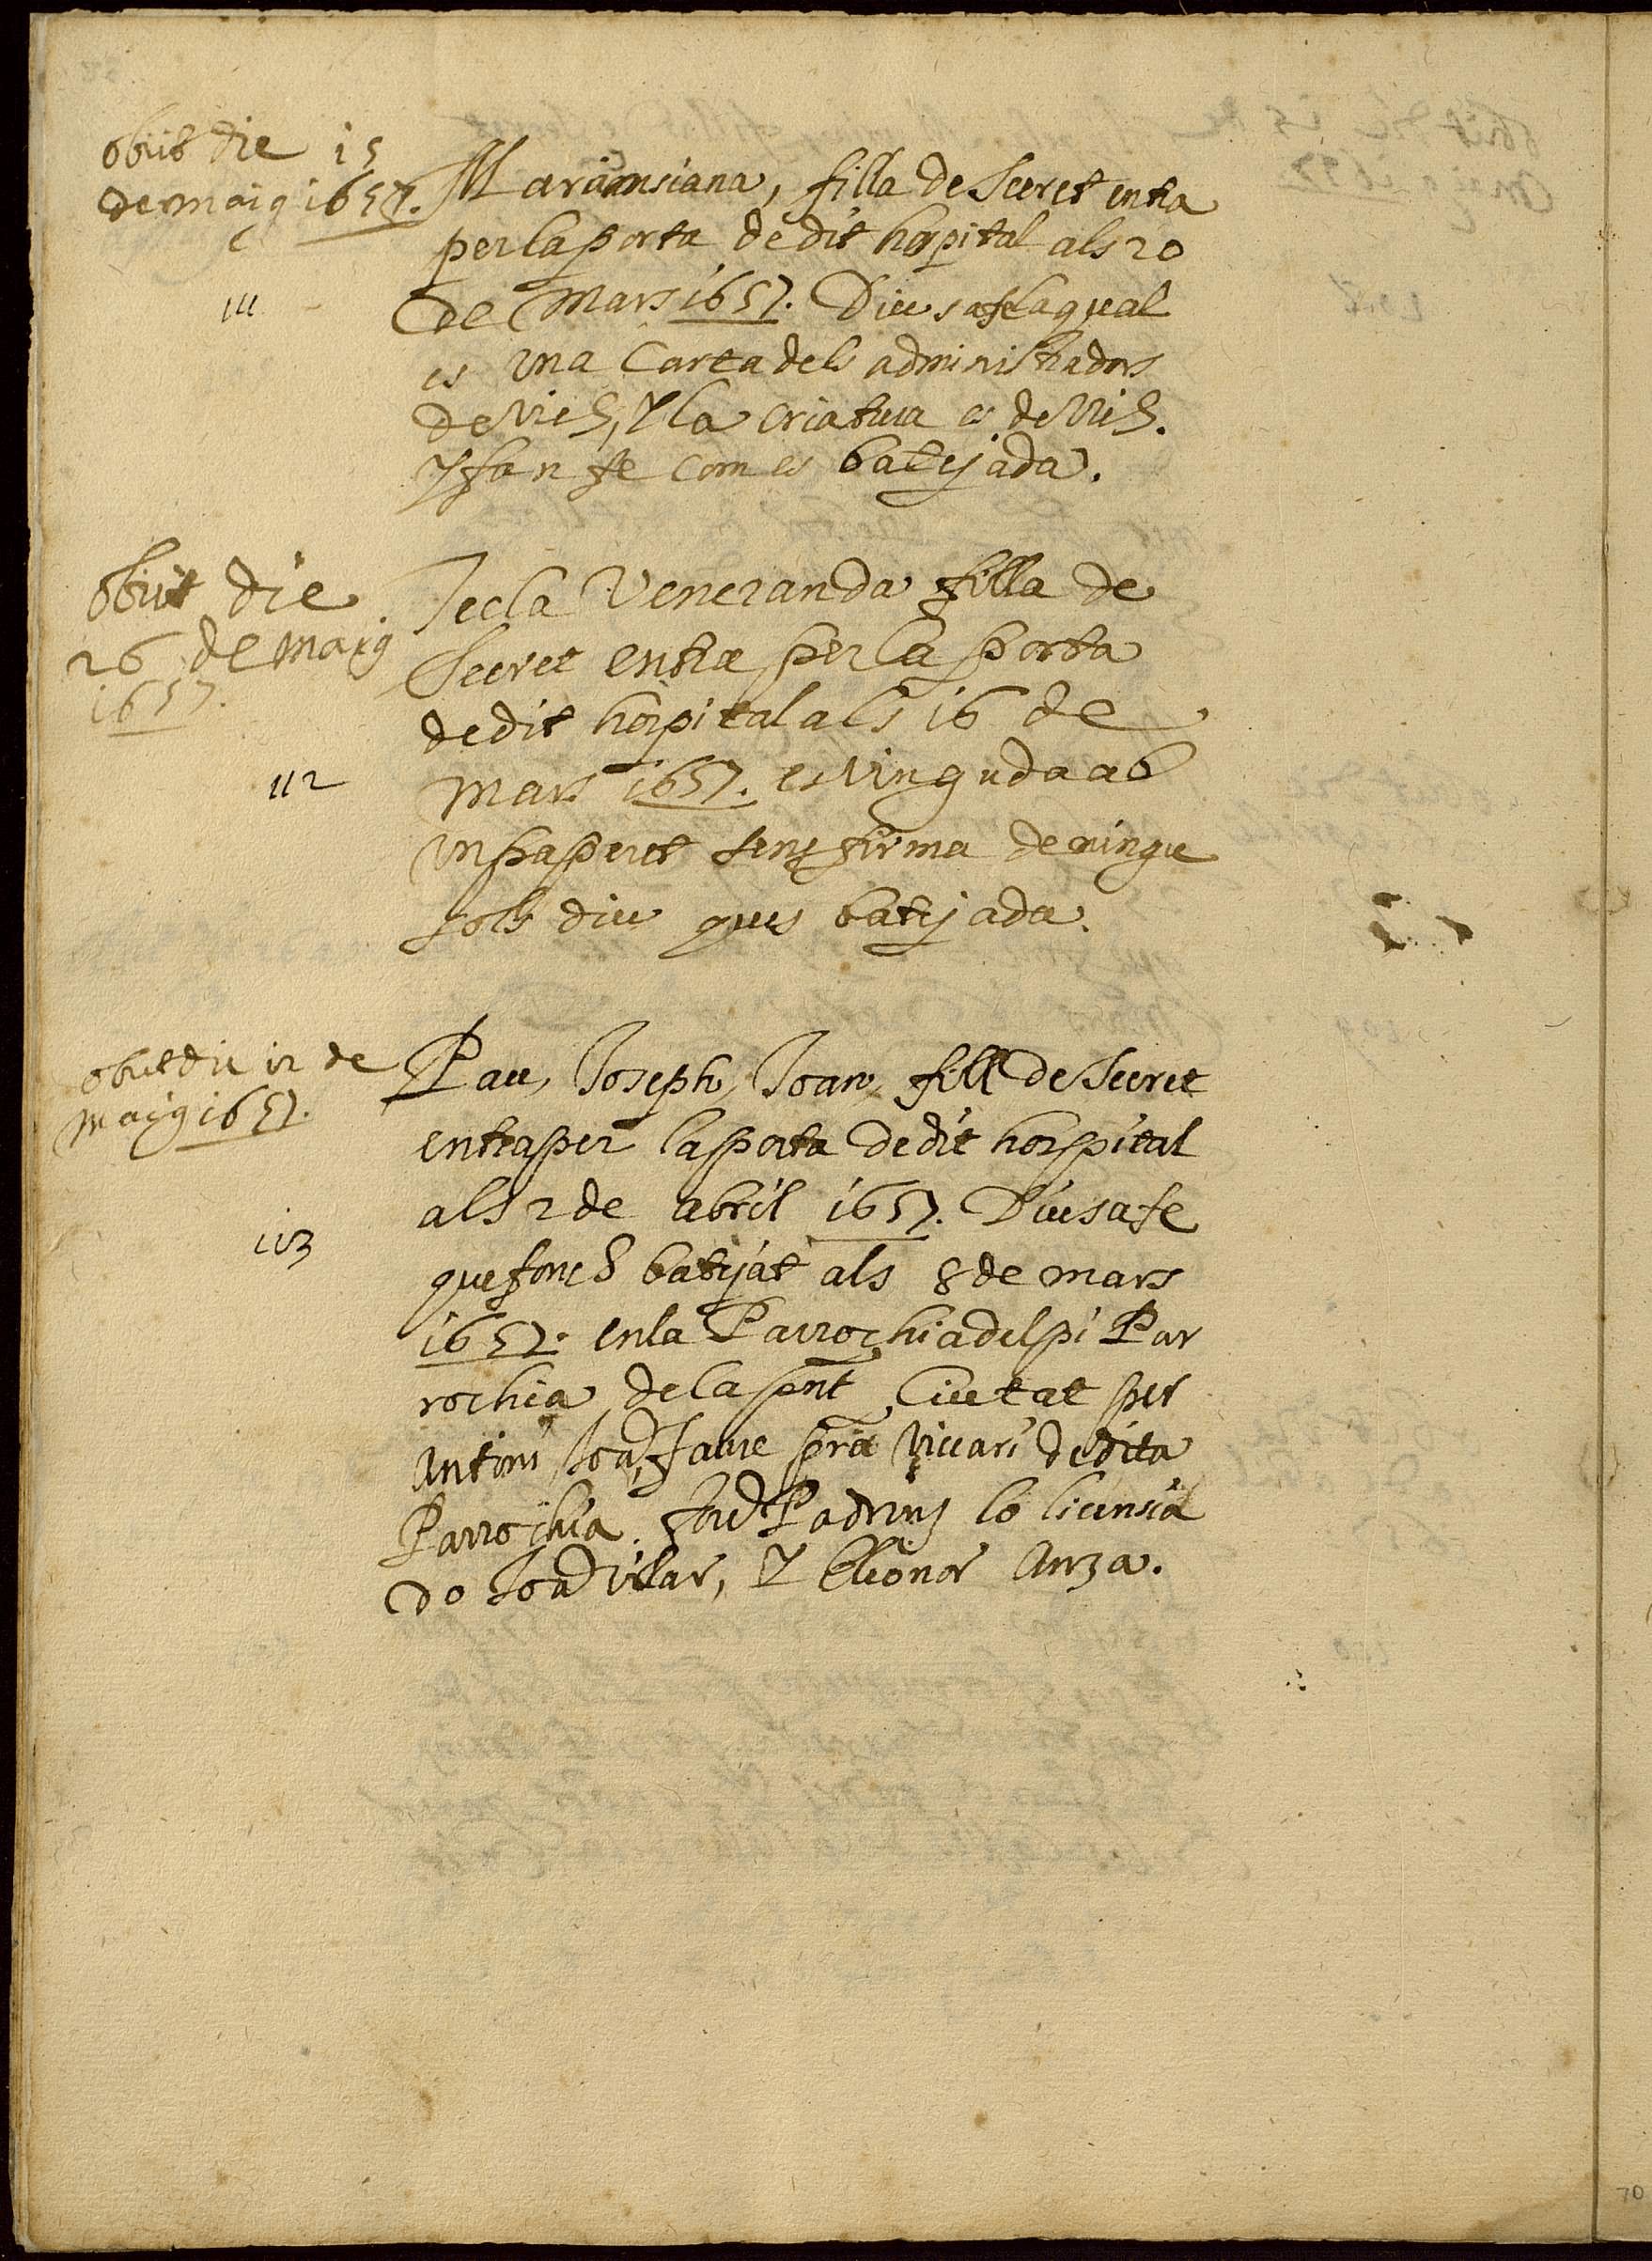 obiit die 15
de maig 1657.
111
Mariansiana, filla de Secret entra
per la porta de dit hospital als 20
de Mars 1657. Diu sa fe la qual
es una Carta dels administradors
de Vich, y la criatura es de Vich.
y fan fe com es batejada.
obiit die
26 de maig
1657.
112
Tecla Veneranda filla de
Secret entra per la porta
de dit hospital als 16 de
Mars 1657. es vinguda ab
un paperet sens firma de ningu
sols diu ques batejada.
obiit die 12 de
maig 1657.
113
Pau, Joseph, Joan, fill de Secret
entra per la porta de dit hospital
als 2 de abril 1657. Diu sa fe
que fonch batejat als 8 de mars
1657. en la Parrochia del pi Par
rochia de la pnt Ciutat per
Antoni Joa Faure pre Vicari de dita
Parrochia. foren Padrins lo licensia
do Joan Vilar, y Elionor Anza.
70